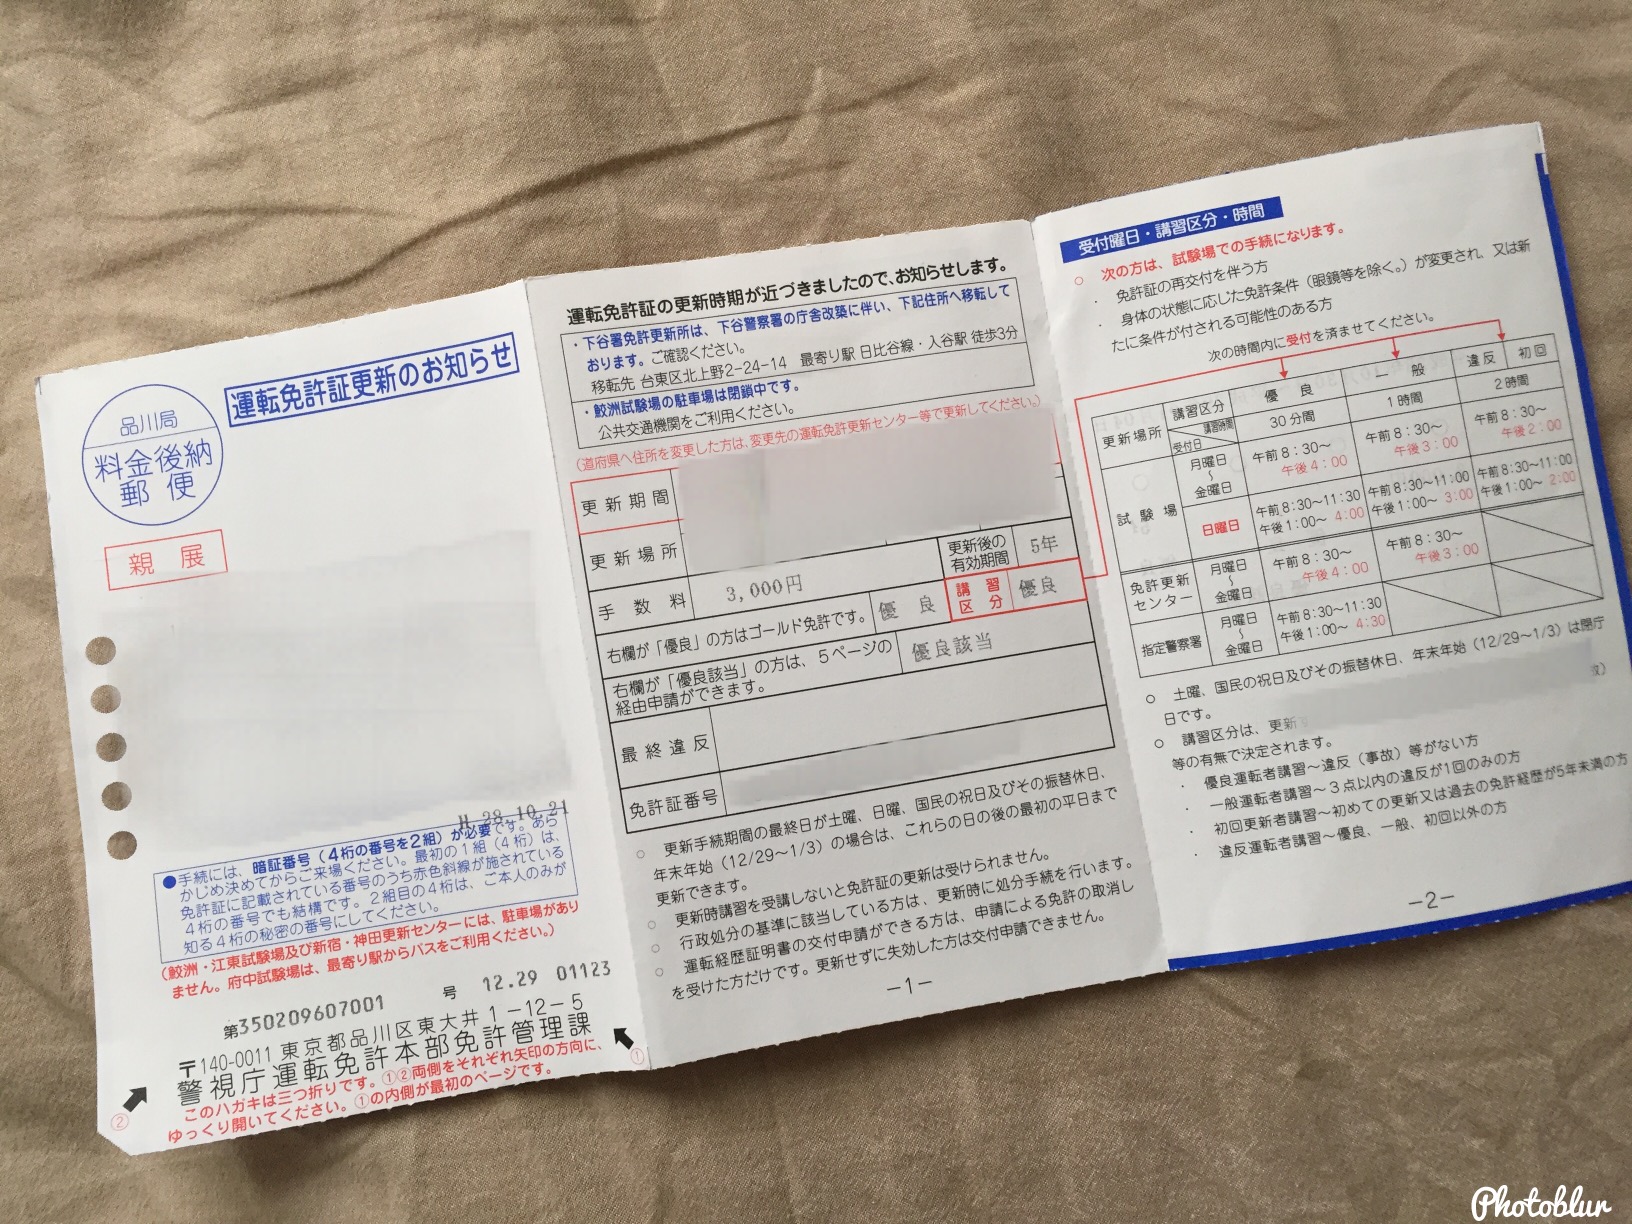 運転免許証更新のお知らせ
品川局
料金後納
郵便
親展
H.28.10.21
●手続には、暗証番号（4桁の番号を2組）が必要です。あら
かじめ決めてからご来場ください。最初の1組（4桁）は、
免許証に記載されている番号のうち赤色斜線が施されている
4桁の番号でも結構です。2組目の4桁は、ご本人のみが
知る4桁の秘密の番号にしてください。
（鮫洲・江東試験場及び新宿・神田更新センターには、駐車場があり
ません。府中試験場は、最寄り駅からバスをご利用ください。）
第350209607001 号 12.29 01123
〒140-0011 東京都品川区東大井1-12-5
警視庁運転免許本部免許管理課
このハガキは三つ折りです。①②両側をそれぞれ矢印の方向に、
ゆっくり開いてください。①の内側が最初のページです。
②
①
運転免許証の更新時期が近づきましたので、お知らせします。
・下谷署免許更新所は、下谷警察署の庁舎改築に伴い、下記住所へ移転して
おります。ご確認ください。
移転先 台東区北上野2-24-14 最寄り駅 日比谷線・入谷駅 徒歩3分
・鮫洲試験場の駐車場は閉鎖中です。
公共交通機関をご利用ください。
（道府県へ住所を変更した方は、変更先の運転免許更新センター等で更新してください。）
更新期間
更新場所
更新後の有効期間 5年
手数料 3,000円
講習区分 優良
右欄が「優良」の方はゴールド免許です。 優良
右欄が「優良該当」の方は、5ページの
経由申請ができます。
優良該当
最終違反
免許証番号
○ 更新手続期間の最終日が土曜、日曜、国民の祝日及びその振替休日、
年末年始（12/29～1/3）の場合は、これらの日の後の最初の平日まで
更新できます。
○ 更新時講習を受講しないと免許証の更新は受けられません。
○ 行政処分の基準に該当している方は、更新時に処分手続を行います。
○ 運転経歴証明書の交付申請ができる方は、申請による免許の取消し
を受けた方だけです。更新せずに失効した方は交付申請できません。
－1－
受付曜日・講習区分・時間
○ 次の方は、試験場での手続になります。
・ 免許証の再交付を伴う方
・ 身体の状態に応じた免許条件（眼鏡等を除く。）が変更され、又は新
たに条件が付される可能性のある方
次の時間内に受付を済ませてください。
更新場所 講習区分 優良 一般 違反 初回
講習時間 30分間 1時間 2時間
受付日
試験場 月曜日～金曜日 午前8：30～午後4：00 午前8：30～午後3：00 午前8：30～午後2：00
日曜日 午前8：30～11：30 午後1：00～4：00 午前8：30～11：00 午後1：00～3：00 午前8：30～11：00 午後1：00～2：00
免許更新センター 月曜日～金曜日 午前8：30～午後4：00 午前8：30～午後3：00
指定警察署 月曜日～金曜日 午前8：30～11：30 午後1：00～4：30
○ 土曜、国民の祝日及びその振替休日、年末年始（12/29～1/3）は閉庁
日です。
○ 講習区分は、更新
等の有無で決定されます。
・ 優良運転者講習～違反（事故）等がない方
・ 一般運転者講習～3点以内の違反が1回のみの方
・ 初回更新者講習～初めての更新又は過去の免許経歴が5年未満の方
・ 違反運転者講習～優良、一般、初回以外の方
－2－
Photoblur